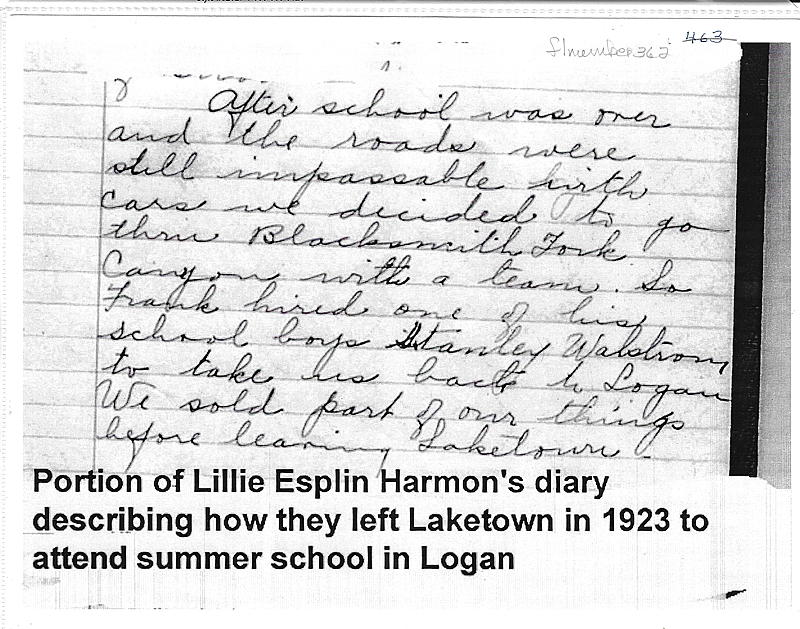 463
After school was over
and the roads were
still impassable with
cars we decided to go
thru Blacksmith Fork
Canyon with a team. So
Frank hired one of his
school boys Stanley Walstrom
to take us back to Logan
We sold part of our things
before leaving Laketown.
Portion of Lillie Esplin Harmon's diary
describing how they left Laketown in 1923 to
attend summer school in Logan